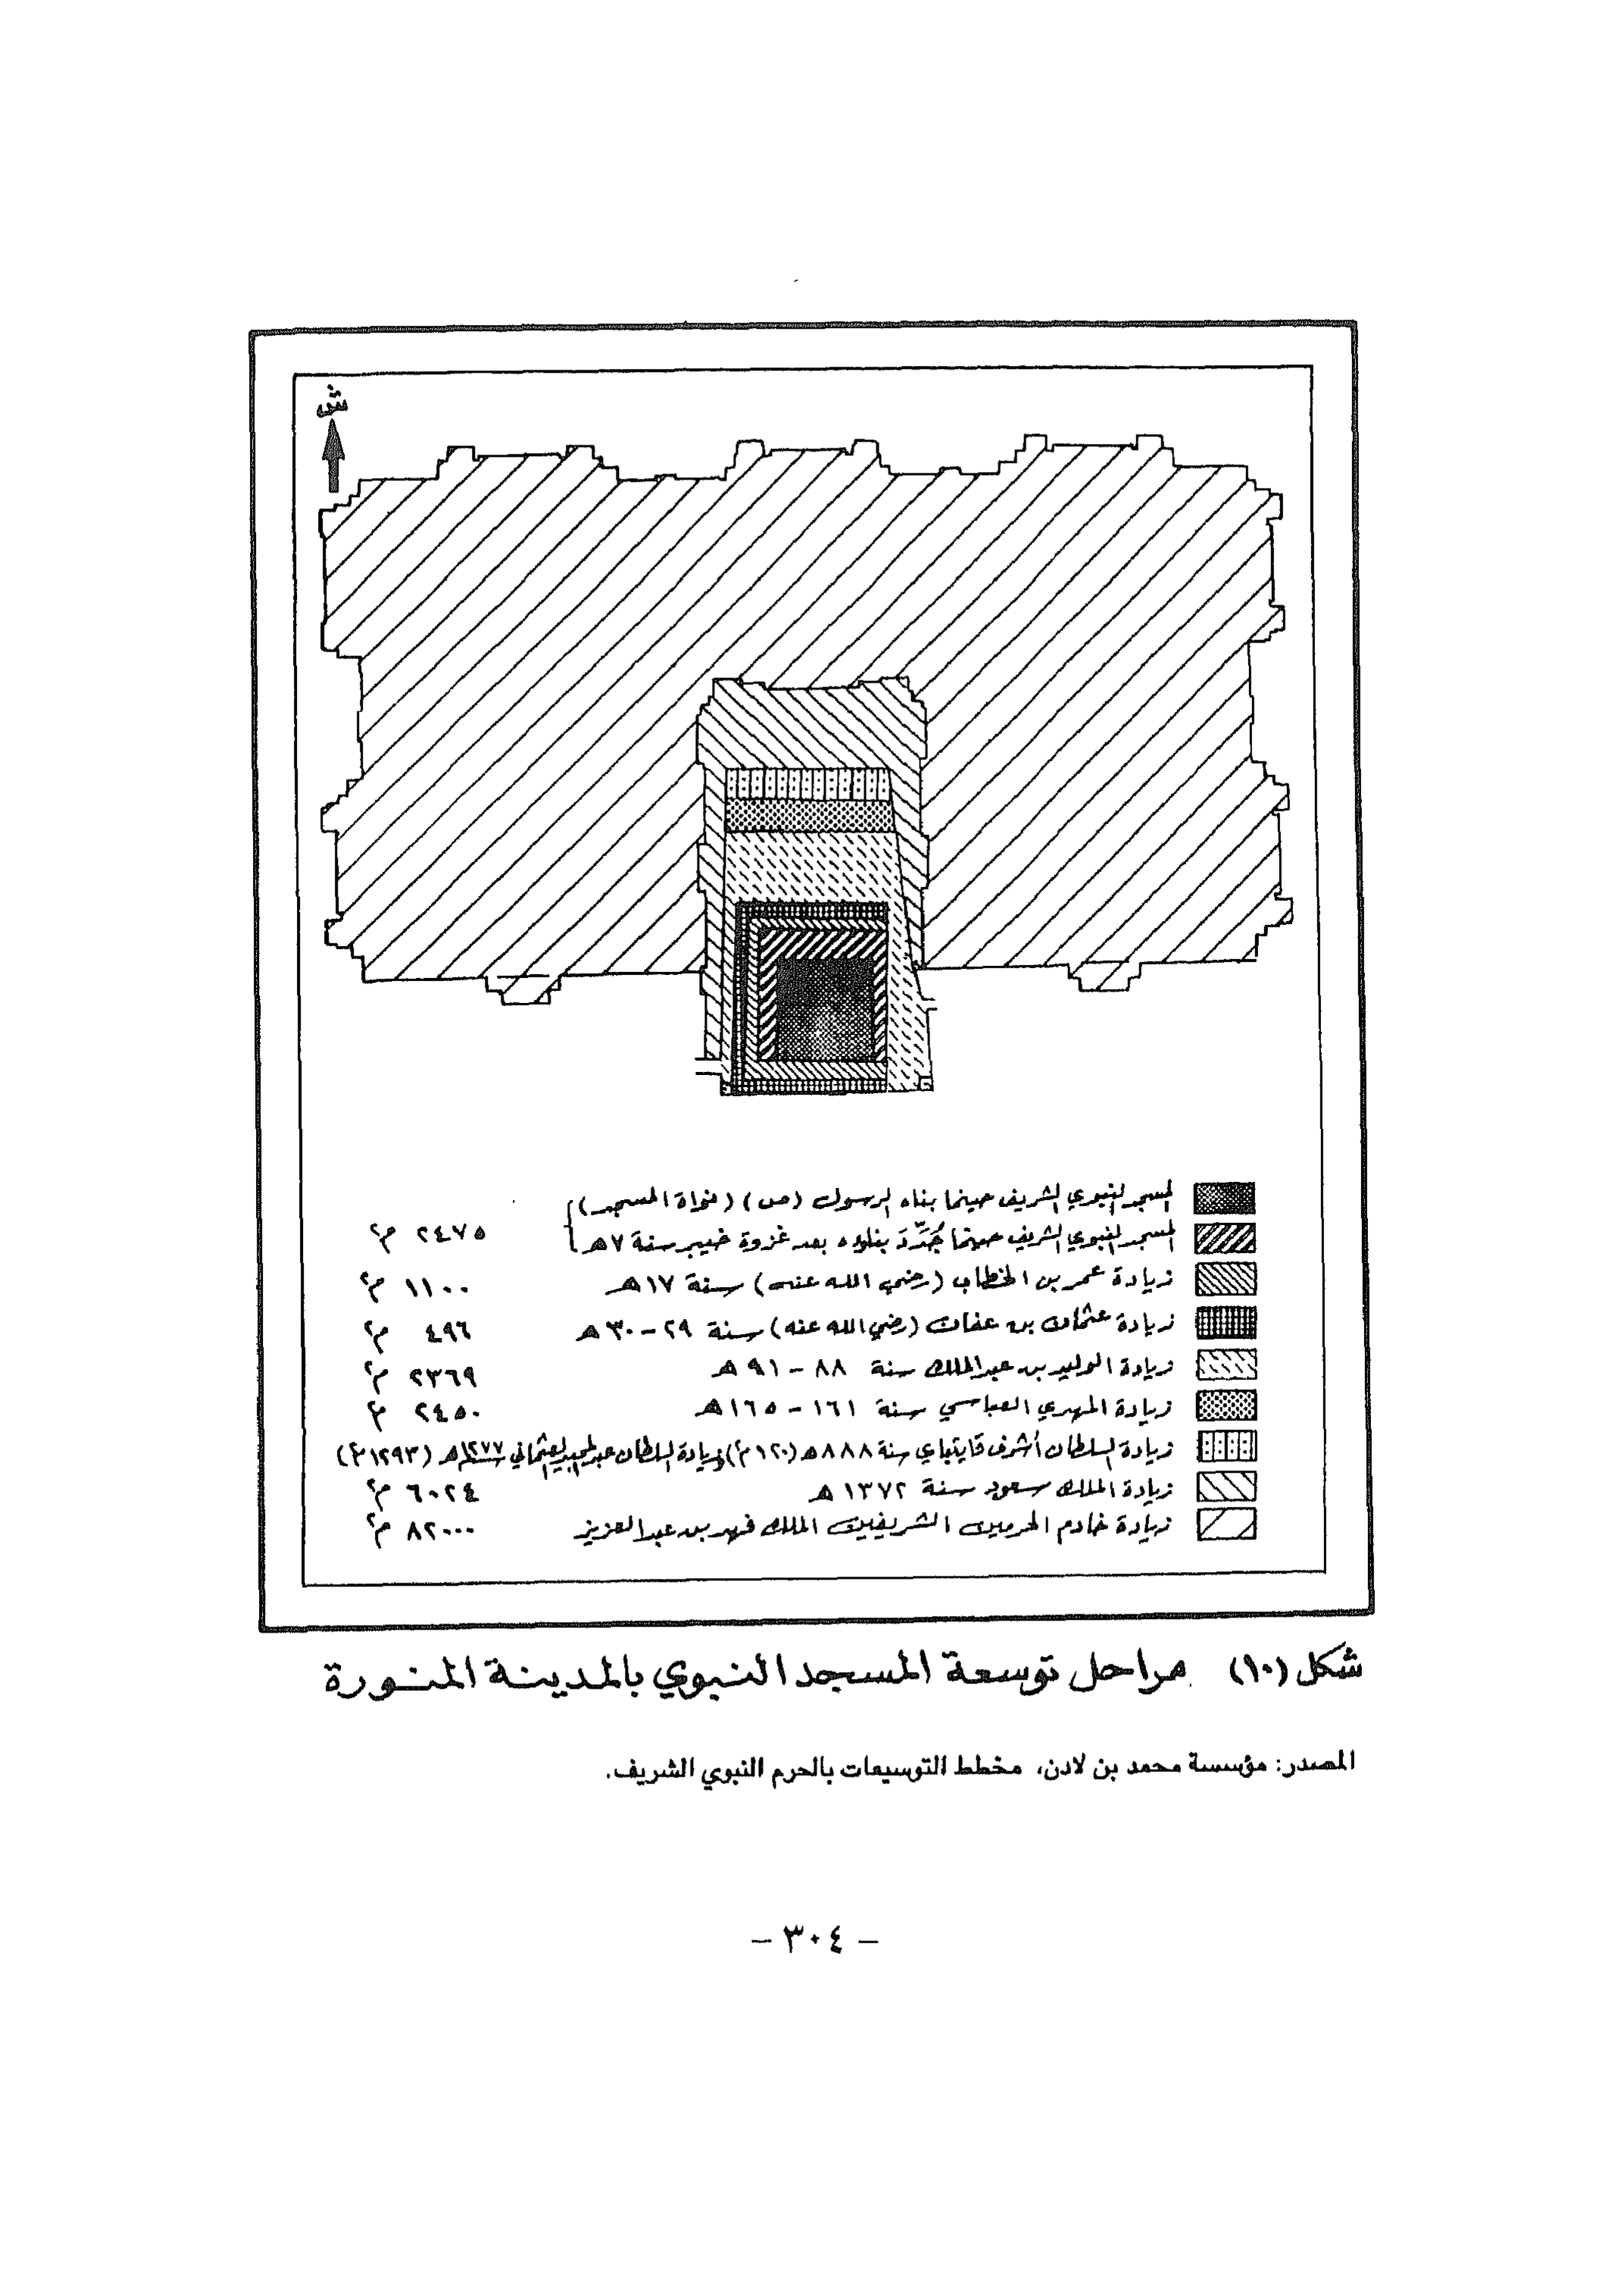 ش
المسجد النبوي الشريف حينما بناه الرسول (ص) (نواة المسجد)
المسجد النبوي الشريف حينما جُدِّدَ بناؤه بعد غزوة خيبر سنة ٧هـ ٢٤٧٥ م٢
زيادة عمر بن الخطاب (رضي الله عنه) سنة ١٧هـ ١١٠٠ م٢
زيادة عثمان بن عفان (رضي الله عنه) سنة ٢٩-٣٠هـ ٤٩٦ م٢
زيادة الوليد بن عبدالملك سنة ٨٨ - ٩١هـ ٢٣٦٩ م٢
زيادة المهدي العباسي سنة ١٦١ - ١٦٥هـ ٢٤٥٠ م٢
زيادة السلطان أشرف قايتباي سنة ٨٨٨هـ (١٢٠م٢) وزيادة السلطان عبدالمجيد العثماني سنة ١٢٧٧هـ (١٢٩٣م٢)
زيادة الملك سعود سنة ١٣٧٢هـ ٦٠٢٤ م٢
زيادة خادم الحرمين الشريفين الملك فهد بن عبدالعزيز ٨٢٠٠٠ م٢
شكل (١٠) مراحل توسعة المسجد النبوي بالمدينة المنورة
المصدر: مؤسسة محمد بن لادن، مخطط التوسيعات بالحرم النبوي الشريف.
- ٣٠٤ -